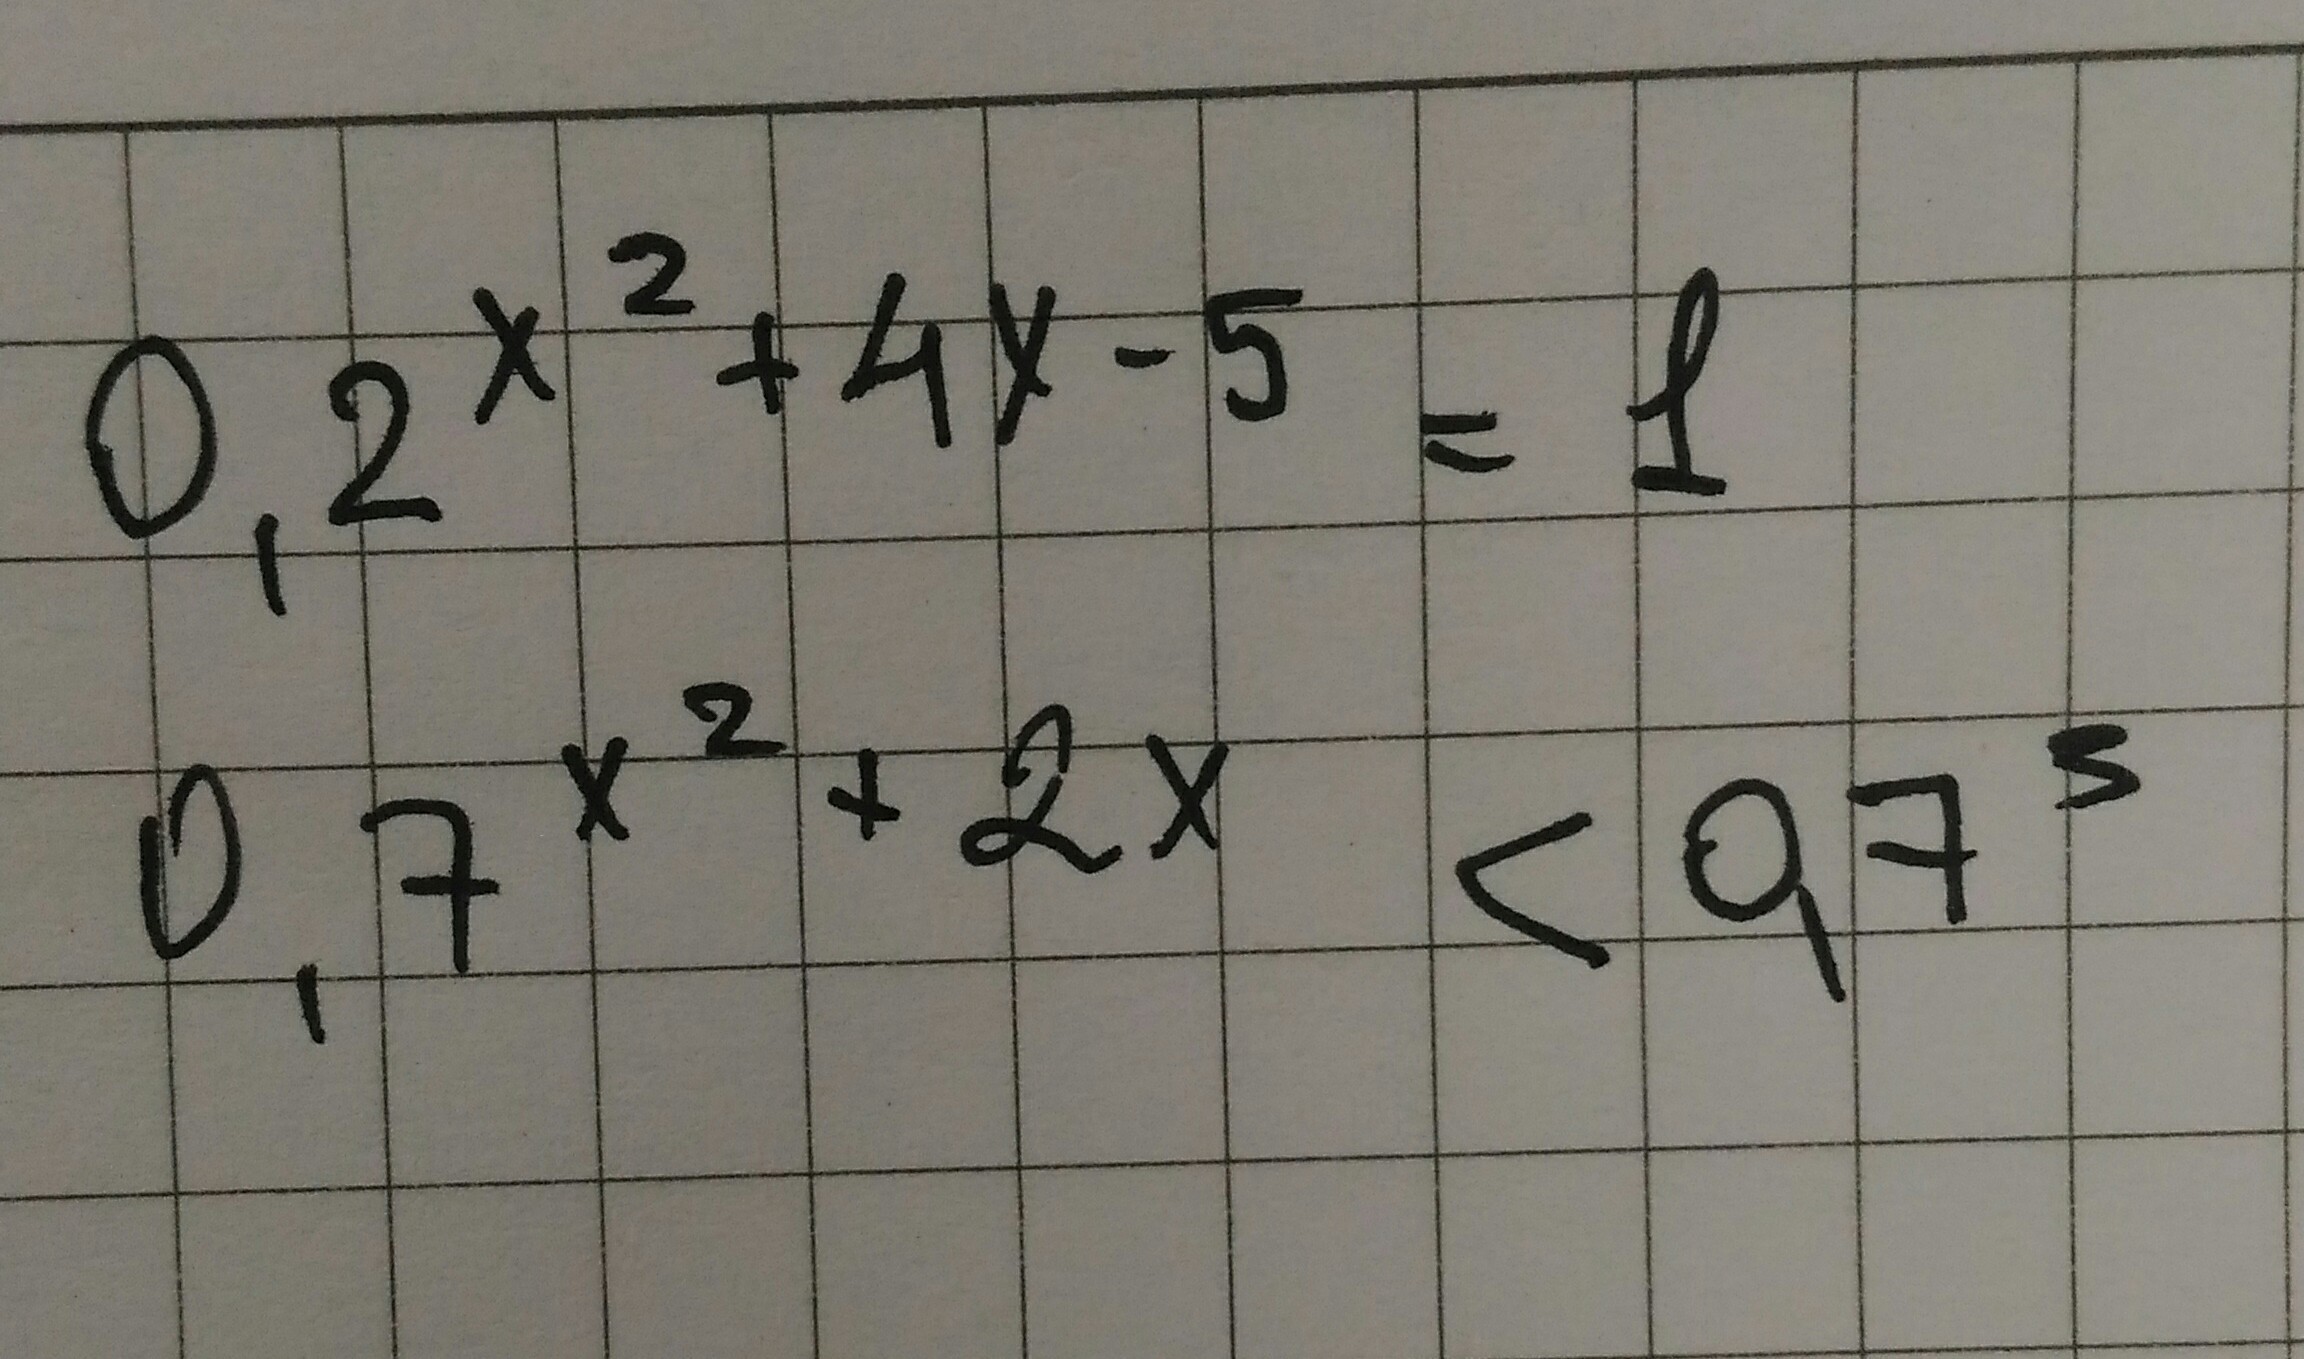 0,2^{x^2+4x-5} = 1
0,7^{x^2+2x} < 0,7^3